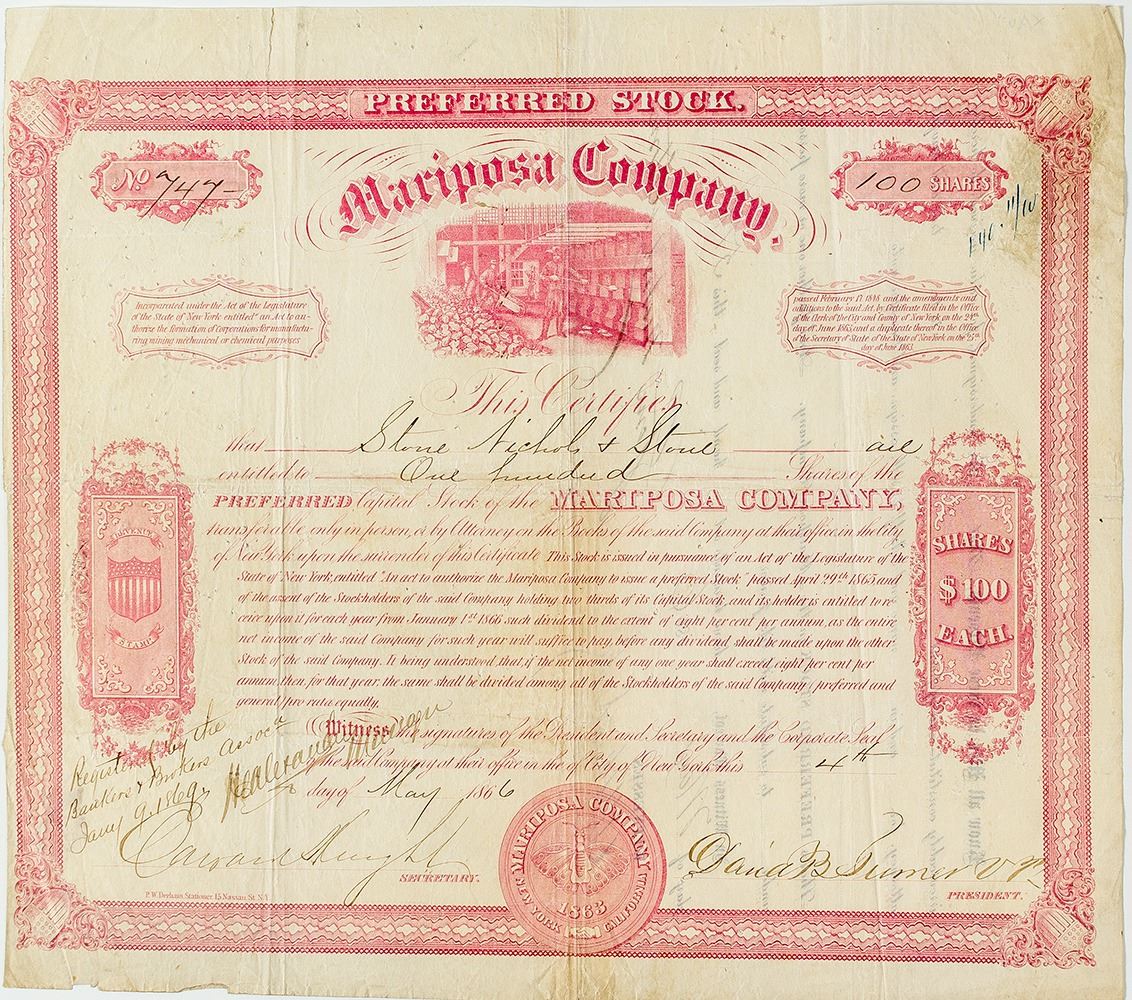 PREFERRED STOCK.
No 747
Mariposa Company.
100 SHARES
11/10
Incorporated under the Act of the Legislature
of the State of New York entitled "an Act to au-
thorize the formation of Corporations for manufactu-
ring mining mechanical or chemical purposes
passed February 17 1848 and the amendments and
additions to the said Act, by Certificate filed in the Office
of the Clerk of the City and County of New York on the 24th
day of June 1863, and a duplicate thereof in the Office
of the Secretary of State of the State of New York on the 25th
day of June 1863.
This Certifies
that Stone Nichols & Stone are
entitled to One hundred Shares of the
PREFERRED Capital Stock of the MARIPOSA COMPANY,
transferable only in person, or by Attorney on the Books of the said Company at their office, in the City
of New York upon the surrender of this Certificate This Stock is issued in pursuance of an Act of the Legislature of the
State of New York, entitled "An act to authorize the Mariposa Company to issue a preferred Stock" passed April 29th 1865 and
of the assent of the Stockholders of the said Company holding two thirds of its Capital Stock, and its holder is entitled to re-
ceive upon it for each year from January 1st 1866 such dividend to the extent of eight per cent per annum, as the entire
net income of the said Company for such year will suffice to pay, before any dividend shall be made upon the other
Stock of the said Company. It being understood that, if the net income of any one year shall exceed eight per cent per
annum, then, for that year, the same shall be divided among all of the Stockholders of the said Company, preferred and
general, pro rata equally.
SHARES
$100
EACH.
STAMP
Witness the signatures of the President and Secretary and the Corporate Seal
of the said Company at their office in the of City of New York this 4th
day of May 1866
Registered by the
Bankers & Brokers Associn
Jany 9. 1869
SECRETARY.
David B Turner V P
PRESIDENT.
MARIPOSA COMPANY
NEW YORK CALIFORNIA
1863
15 Nassau St. N.Y.